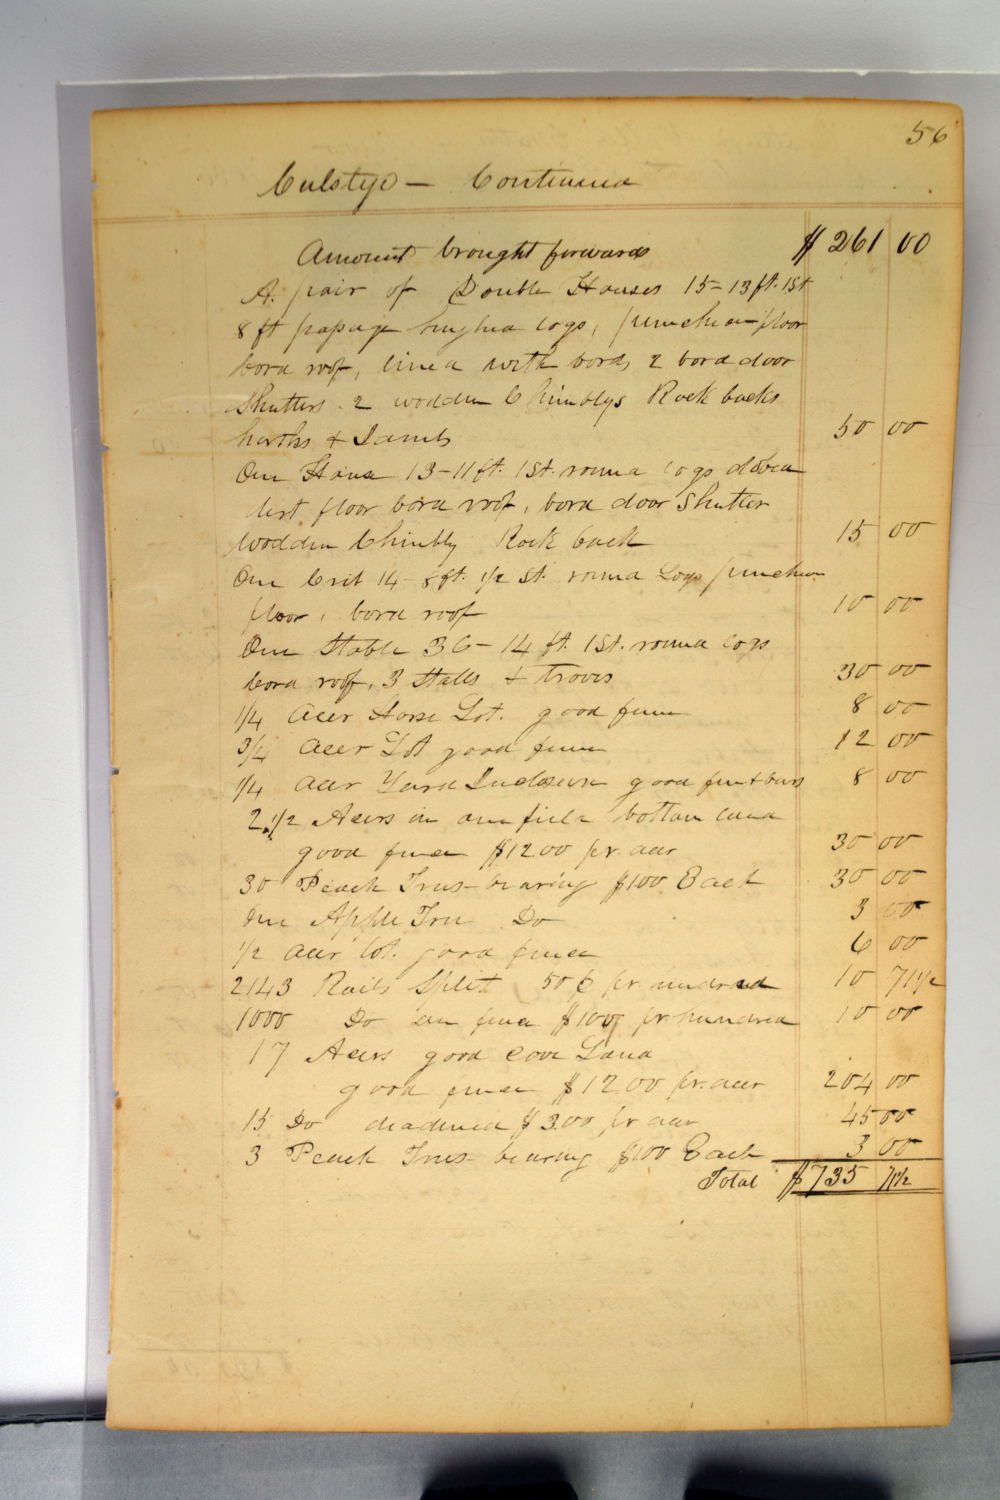 56
Culstye — Continued
Amount brought forward $ 261 00
A. pair of Double Houses 15-13 ft. 1 St
8 ft passage hughed logs, puncheon floor
bord roof, lined with bords, 2 bord door
Shutters. 2 wodden Chimblys Rock backs
harths & Jambs 50 00
One House 13-11 ft. 1 St. round logs dobed
dirt floor bord roof, bord door Shutter
wodden Chimbly Rock back 15 00
One Crib 14-8 ft. 1/2 St. round Logs puncheon
floor, bord roof 10 00
One Stable 36-14 ft. 1 St. round logs
bord roof, 3 Stalls & troves 30 00
1/4 Acer Horse Lot. good fence 8 00
3/4 Acer Lot good fence 12 00
1/4 Acer Yard Inclosure good fence & bars 8 00
2 1/2 Acers in one field bottom land
good fence $12 00 pr. acer 30 00
30 Peach Trees bearing $1 00 Each 30 00
One Apple Tree Do 3 00
1/2 acer lot. good fence 6 00
2143 Rails Split 50 ¢ pr. undred 10 71 1/2
1000 Do in fence $1 00 pr. hundred 10 00
17 Acers good cove Land
good fence $12 00 pr. acer 204 00
15 Do deadened $3.00 pr acer 45 00
3 Peach Trees bearing $1 00 Each 3 00
Total $735 71 1/2